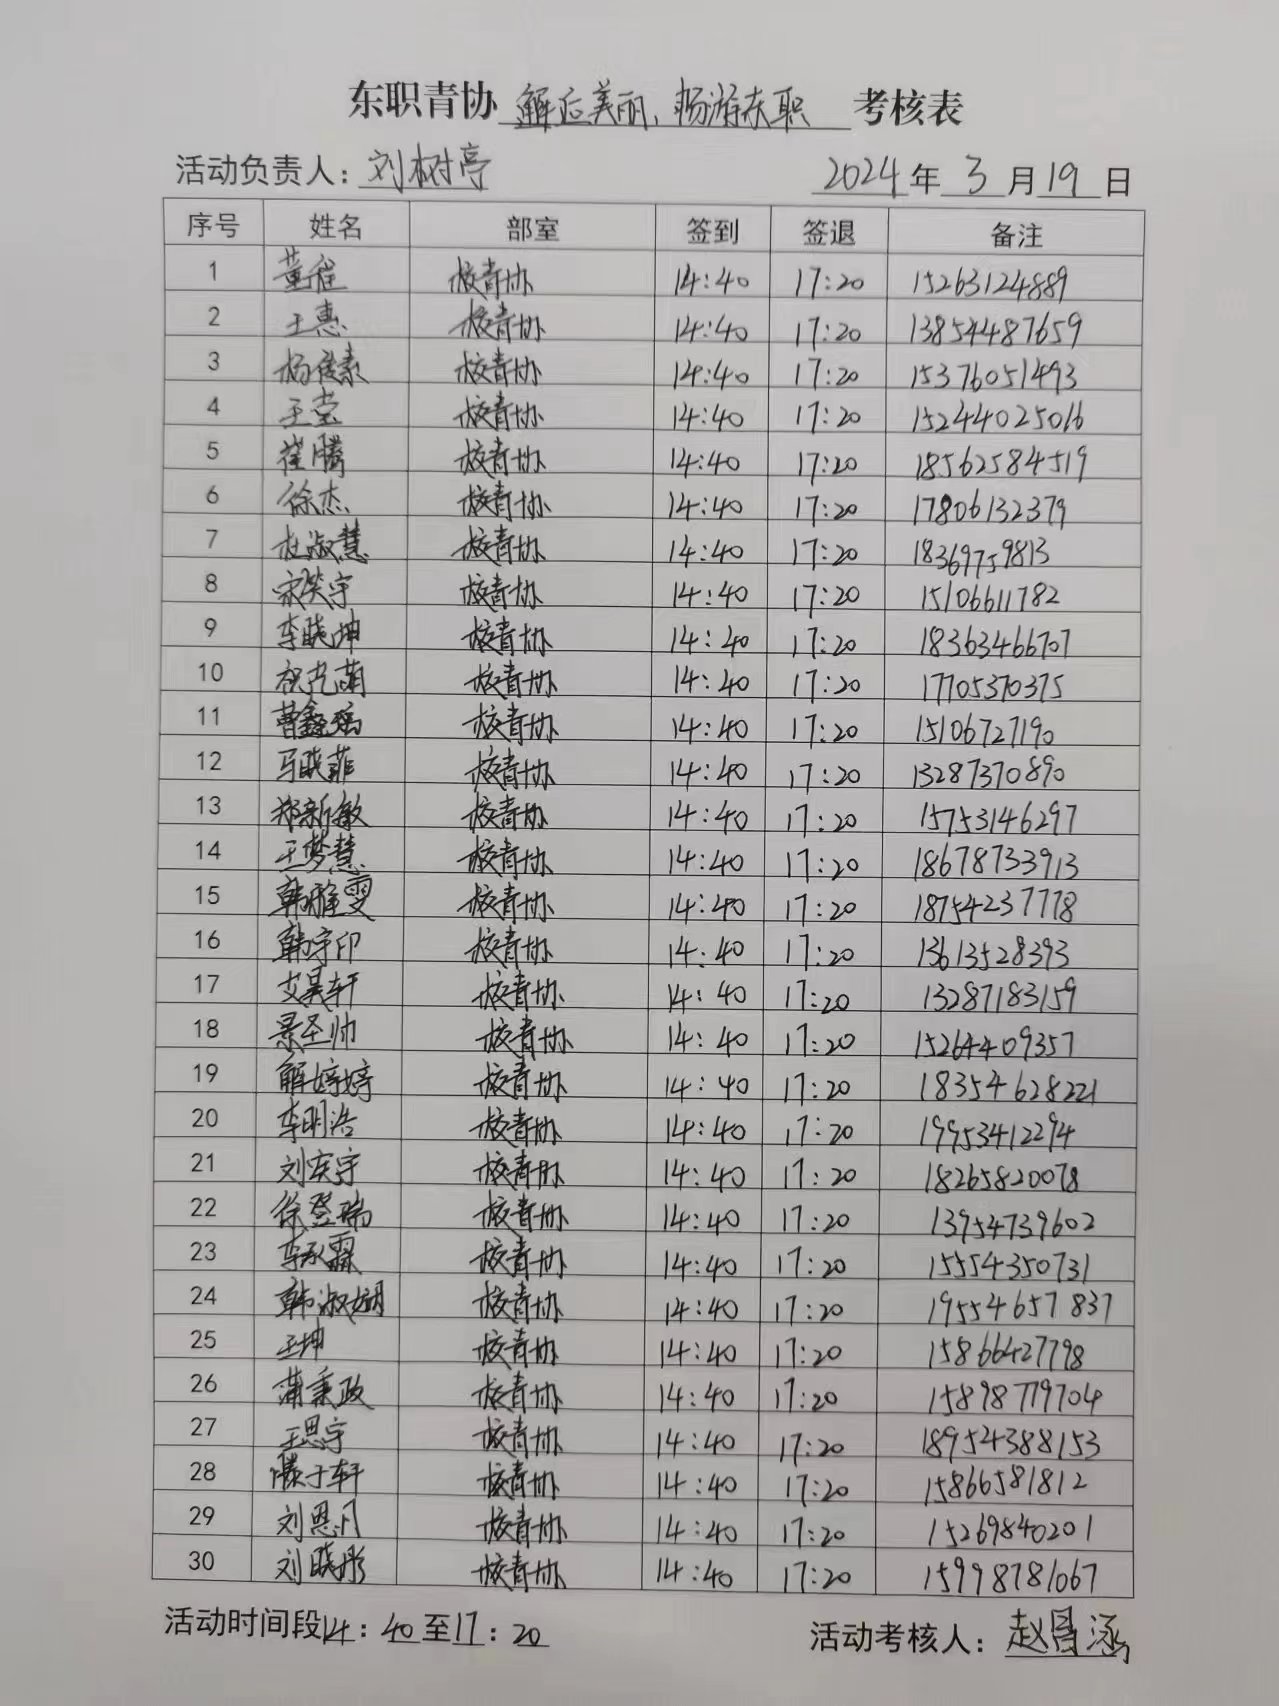 东职青协 邂逅美丽、畅游东职 考核表
活动负责人：刘树亭 2024年3月19日
序号 姓名 部室 签到 签退 备注
1 董程 校青协 14:40 17:20 15263124889
2 王惠 校青协 14:40 17:20 13854487659
3 杨俊素 校青协 14:40 17:20 15376051493
4 王莹 校青协 14:40 17:20 15244025066
5 崔腾 校青协 14:40 17:20 18562584519
6 徐杰 校青协 14:40 17:20 17806132379
7 杜淑慧 校青协 14:40 17:20 18369759813
8 宋英宇 校青协 14:40 17:20 15106611782
9 李晓坤 校青协 14:40 17:20 18363466707
10 祝光萌 校青协 14:40 17:20 17705370375
11 曹鑫瑶 校青协 14:40 17:20 15106727190
12 马晓菲 校青协 14:40 17:20 13287370890
13 郑新敏 校青协 14:40 17:20 15753146297
14 王梦慧 校青协 14:40 17:20 18678733913
15 韩雅雯 校青协 14:40 17:20 18754237778
16 韩宇印 校青协 14:40 17:20 13613528393
17 艾昊轩 校青协 14:40 17:20 13287183159
18 景圣帅 校青协 14:40 17:20 15264409357
19 解婷婷 校青协 14:40 17:20 18354628221
20 李明浩 校青协 14:40 17:20 19953412294
21 刘庆宇 校青协 14:40 17:20 18265820078
22 徐登瑞 校青协 14:40 17:20 13954739602
23 李承霖 校青协 14:40 17:20 15554350731
24 韩淑娴 校青协 14:40 17:20 19554657837
25 王坤 校青协 14:40 17:20 15866427798
26 蒲秉政 校青协 14:40 17:20 15898779704
27 王思宇 校青协 14:40 17:20 18954388153
28 滕于轩 校青协 14:40 17:20 15866581812
29 刘恩月 校青协 14:40 17:20 15269840201
30 刘晓彤 校青协 14:40 17:20 15998781067
活动时间段14：40至17：20 活动考核人：赵涵